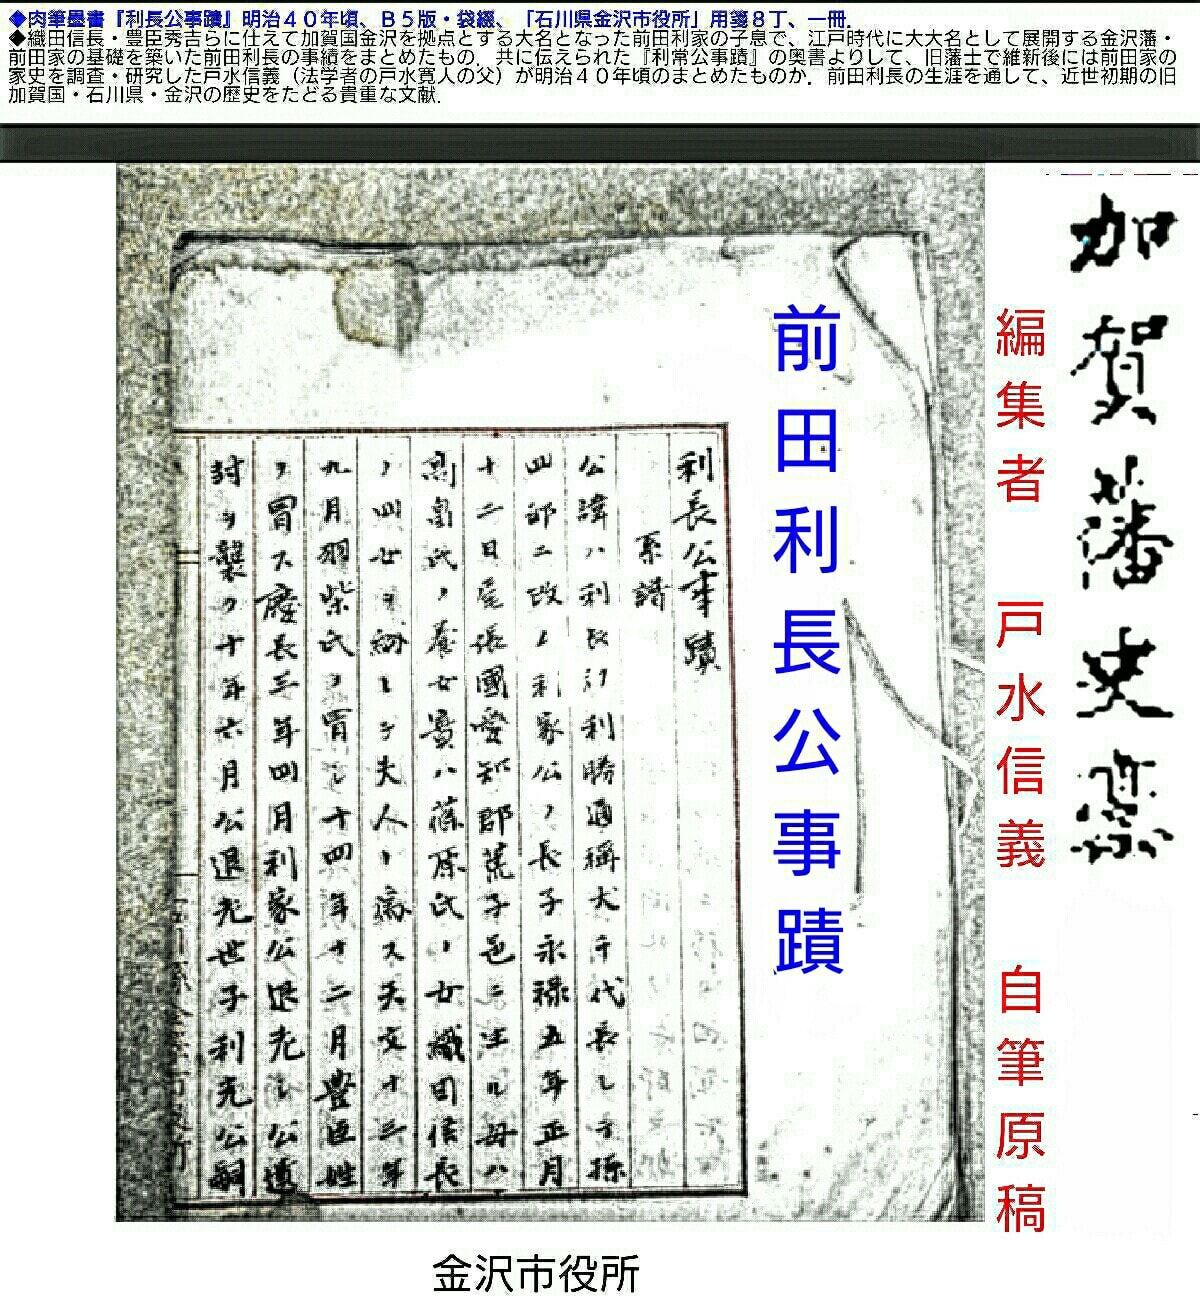 ◆肉筆墨書『利長公事蹟』明治４０年頃、Ｂ５版・袋綴、「石川県金沢市役所」用箋８丁、一冊．
◆織田信長・豊臣秀吉らに仕えて加賀国金沢を拠点とする大名となった前田利家の子息で、江戸時代に大大名として展開する金沢藩・
前田家の基礎を築いた前田利長の事績をまとめたもの．共に伝えられた『利常公事蹟』の奥書よりして、旧藩士で維新後には前田家の
家史を調査・研究した戸水信義（法学者の戸水寛人の父）が明治４０年頃のまとめたものか．前田利長の生涯を通して、近世初期の旧
加賀国・石川県・金沢の歴史をたどる貴重な文献．
加賀藩史稿
編集者　戸水信義　自筆原稿
前田利長公事蹟
利長公事蹟
系譜
公諱ハ利長初利勝通稱犬千代長シテ孫
四郎ニ改ム利家公ノ長子永禄五年正月
十二日尾張國愛知郡荒子邑ニ生ル母ハ
高畠氏ノ養女實ハ篠原氏ノ女織田信長
ノ四女ヲ納レテ夫人ト為ス天文十三年
九月羽柴氏ヲ冒シ十四年十二月豊臣姓
ヲ冒ス慶長三年四月利家公退老シ公遺
封ヲ襲ク十年六月公退老世子利光公嗣
金沢市役所